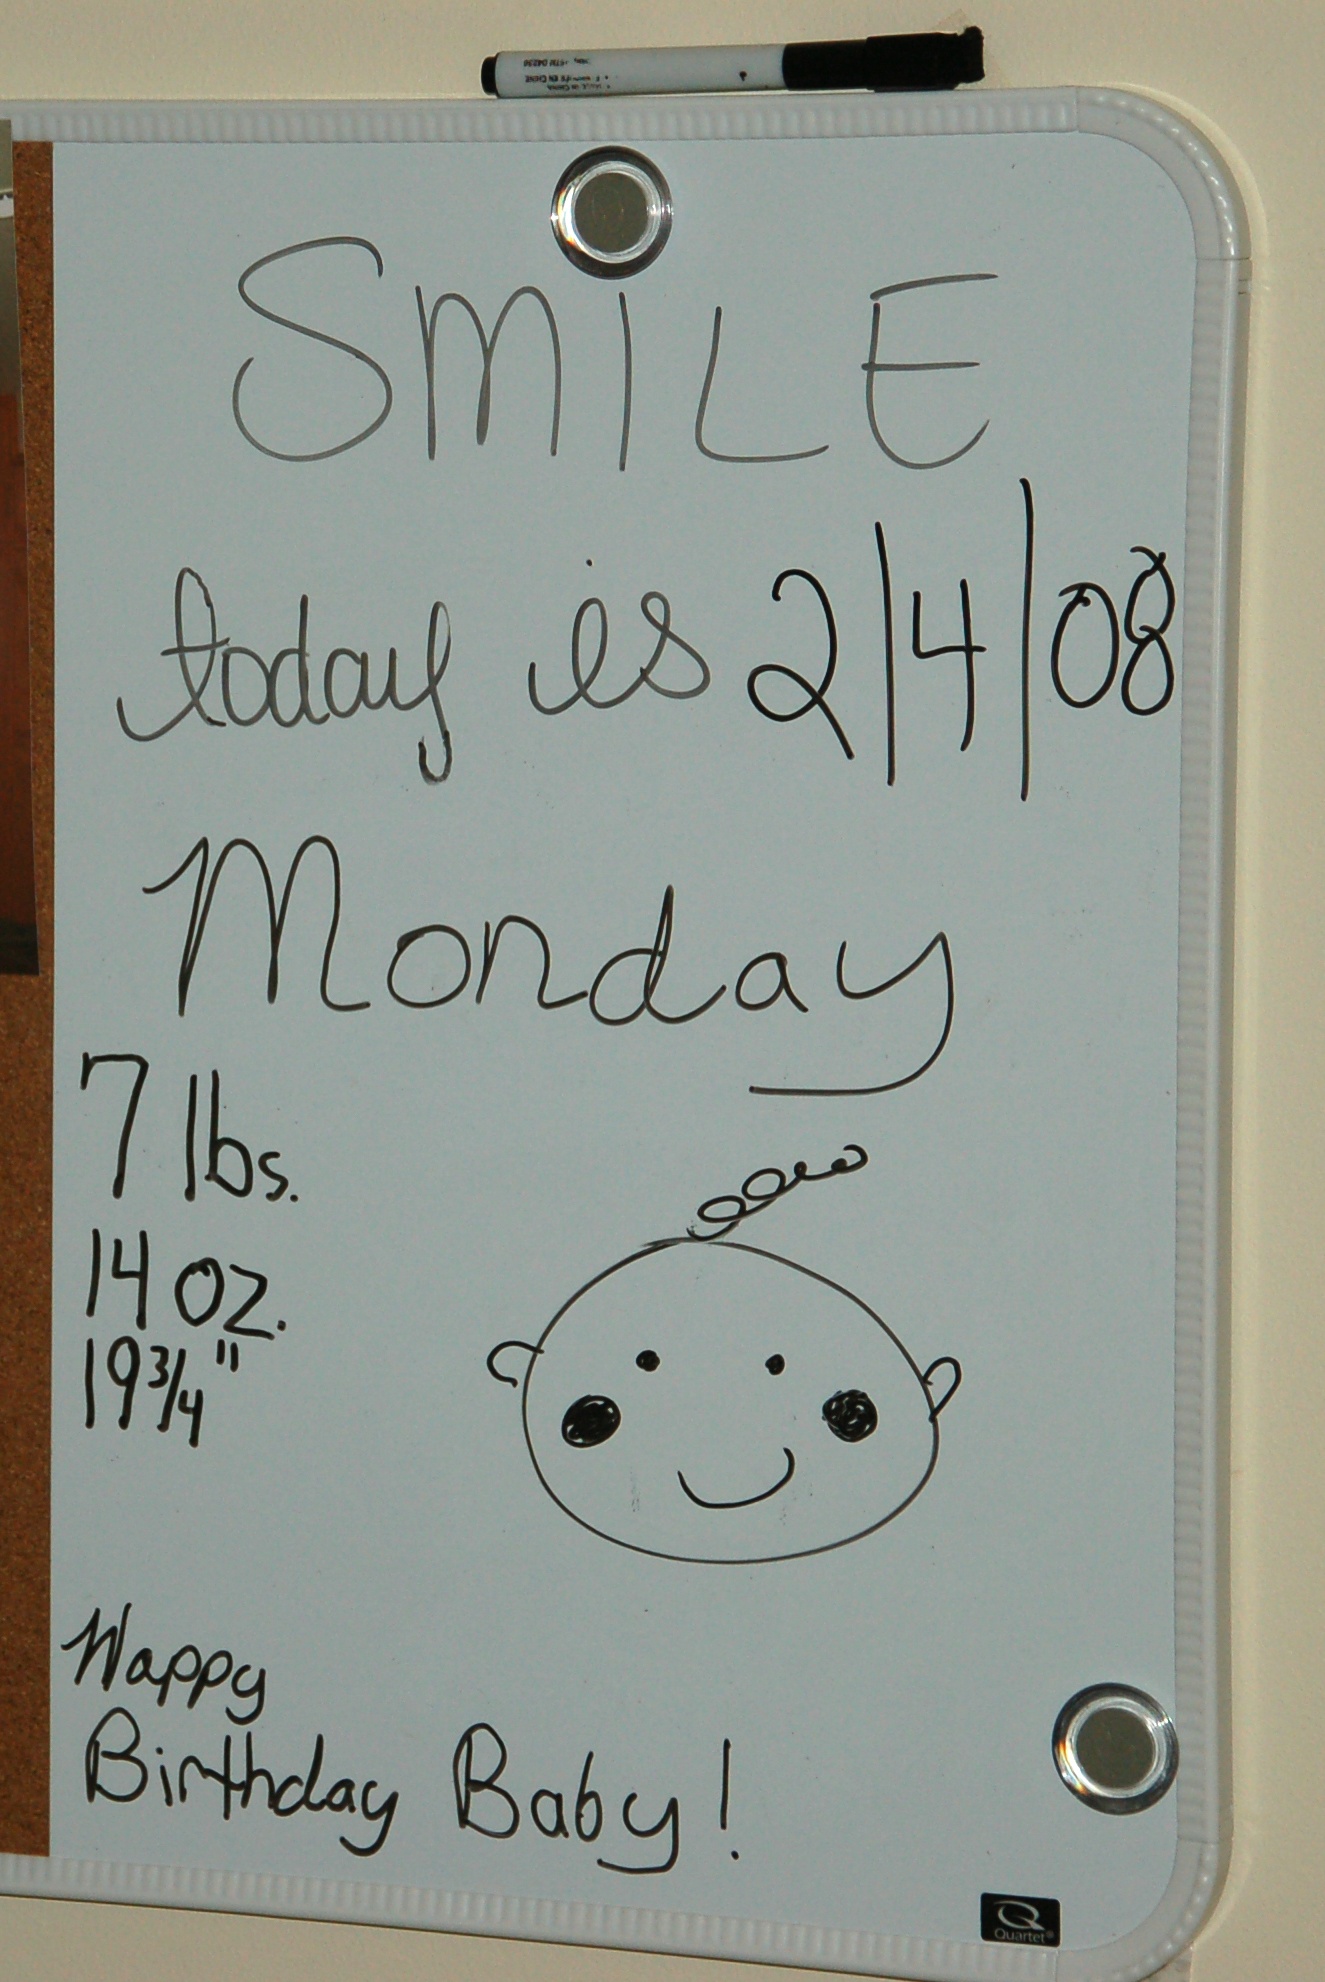 SMILE
today is 2/4/08
Monday
7 lbs.
14 oz.
19 3/4"
Happy
Birthday Baby!
Quartet®